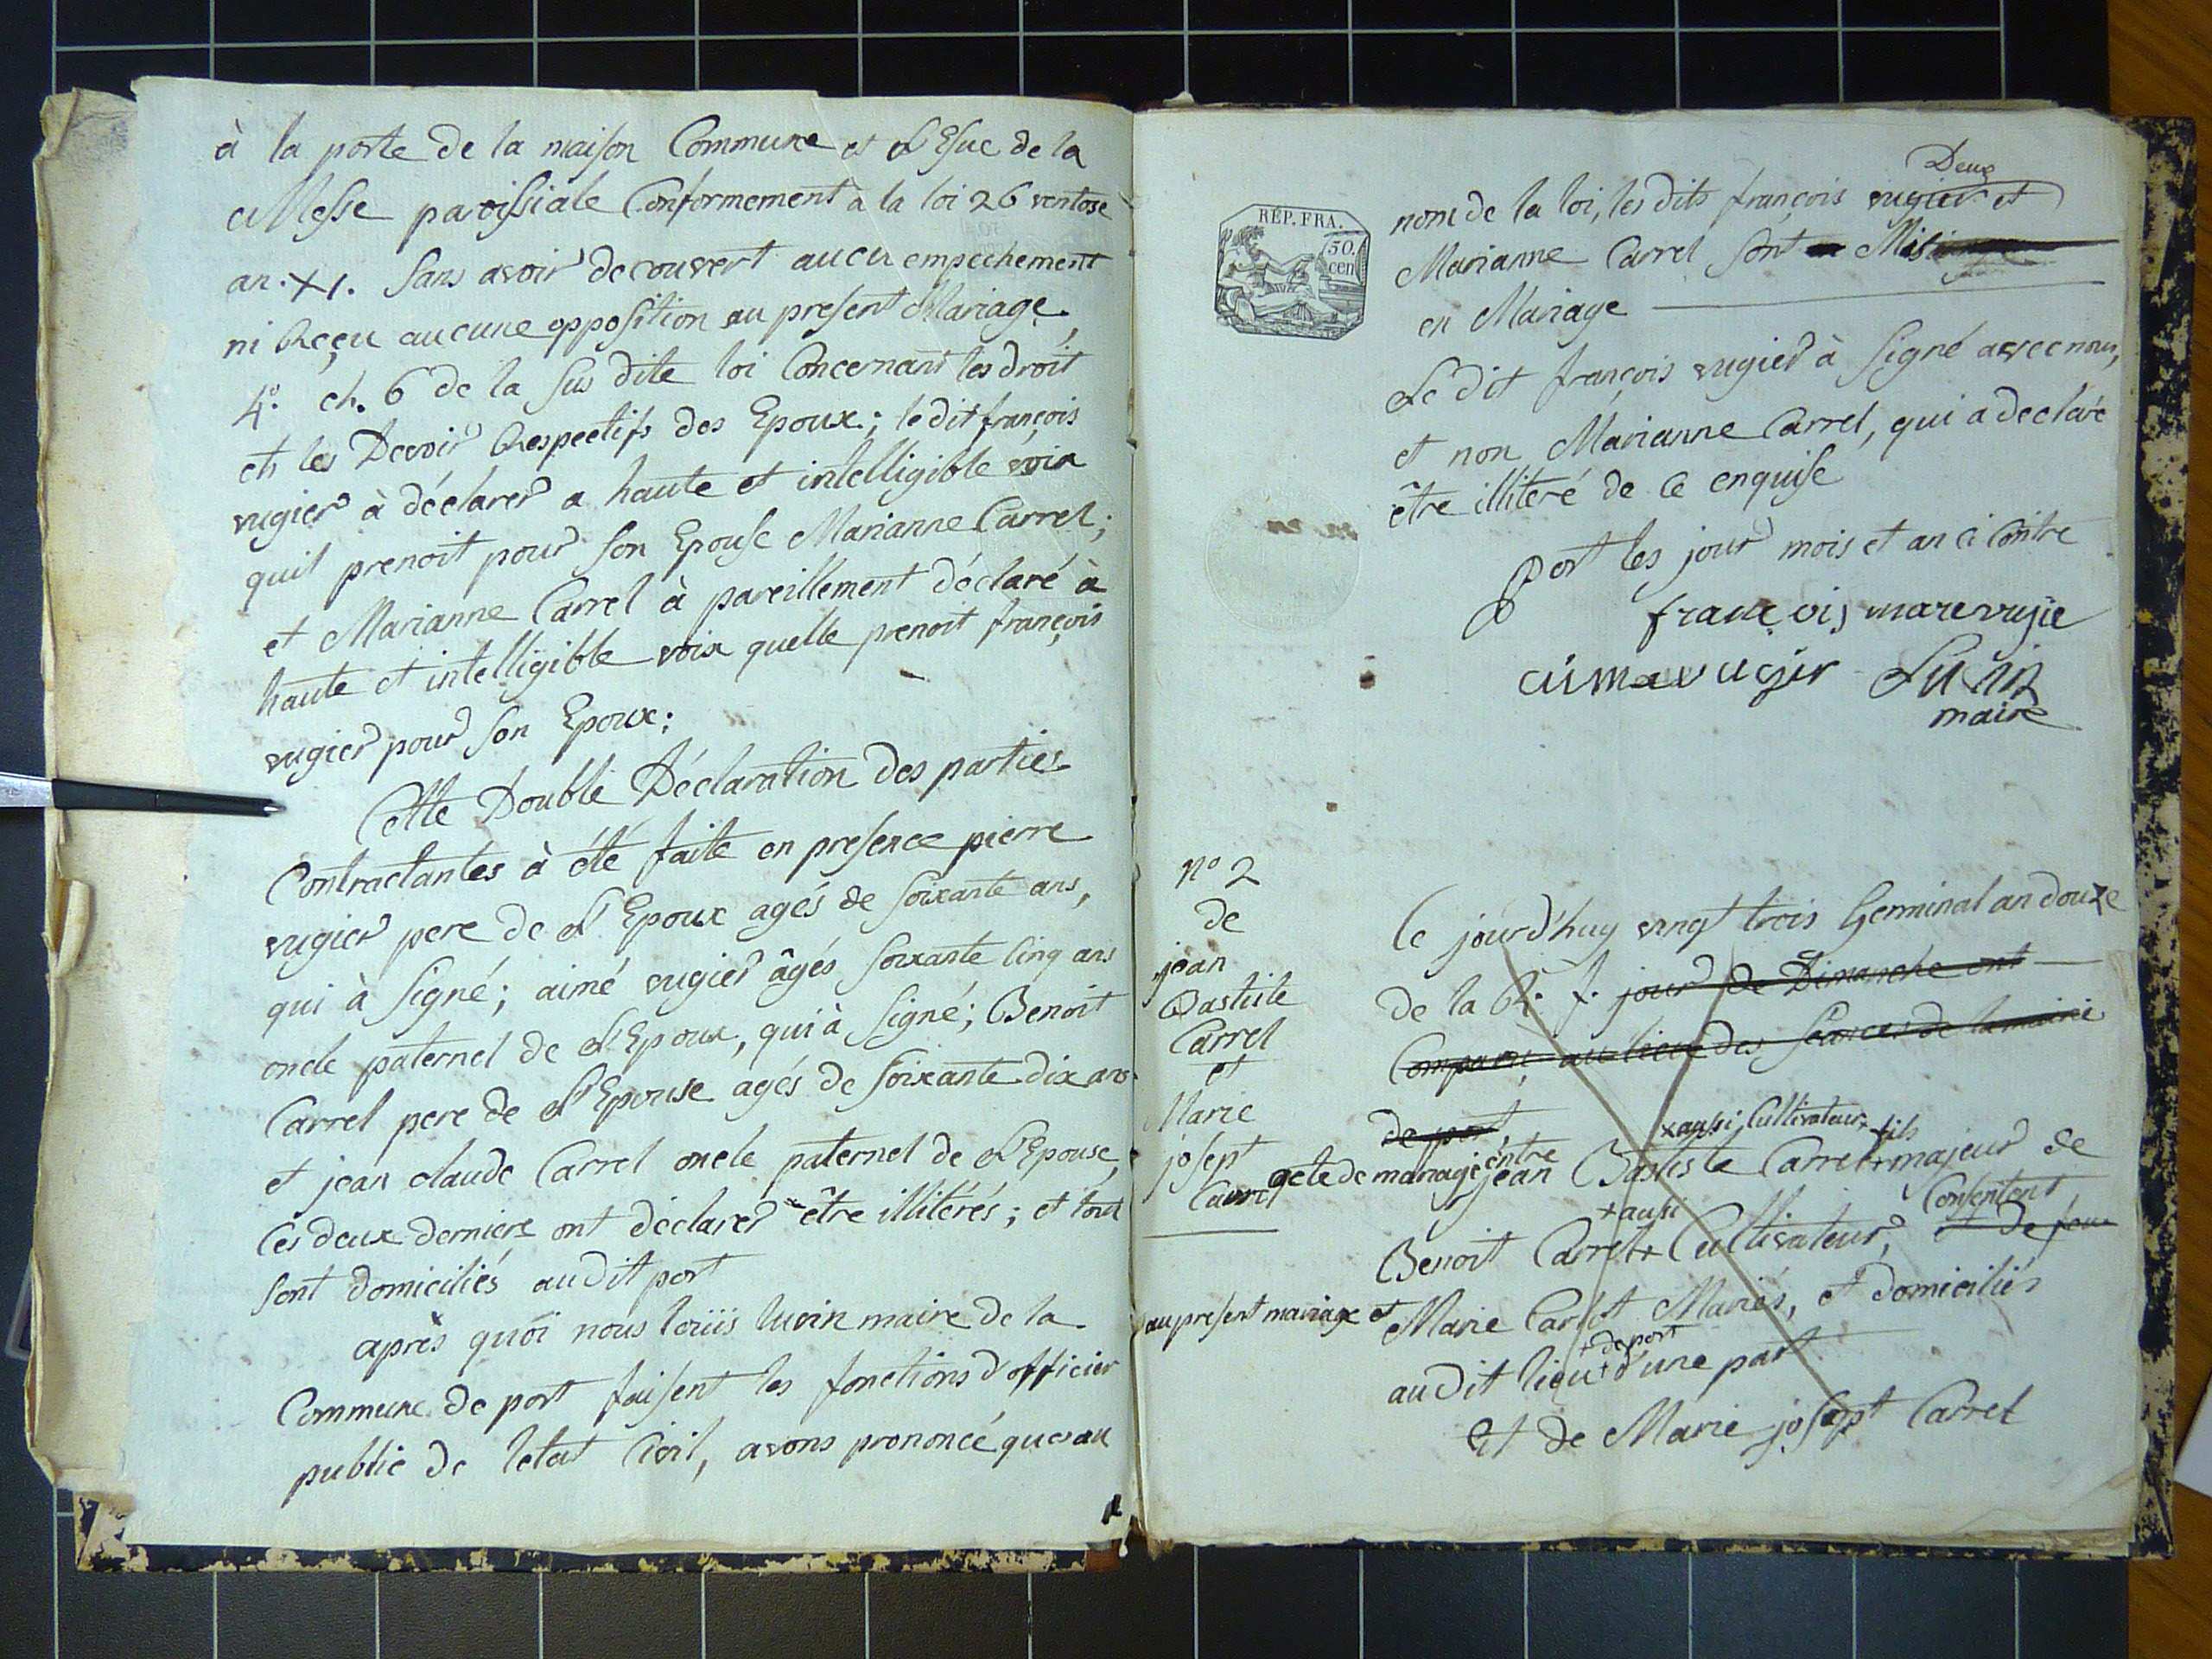 à la porte de la maison Commune et L'Esuë de la
Messe paroissiale Conformement à la loi 26 ventose
an. XI. Sans avoir decouvert aucu empechement
ni Reçu aucune opposition au present Mariage,
4º. ch. 6 de la sus dite loi Concernant les droit
et les Devoir Respectifs des Epoux; le dit françois
vugier à déclarer a haute et intelligible voix
quil prenoit pour son Epouse Marianne Carrel;
et Marianne Carrel à pareillement déclaré à
haute et intelligible voix quelle prenoit françois
vugier pour son Epoux;
Cette Double Déclaration des parties
Contractantes à été faite en presence pierre
vugier pere de L'Epoux agés de soixante ans,
qui à signé; aimé vugier âgés soixante Cinq ans
oncle paternel de L'Epoux, qui à signé; Benoit
Carrel pere de L'Epouse agés de soixante dix ans
et jean claude Carrel oncle paternel de L'Epouse,
Ces deux derniere ont declarer être illitérés; et tout
sont domiciliés audit port
après quoi nous louis lucin maire de la
Commune de port faisent les fonctions d'officier
public de letat Civil, avons prononcé que au
Deux
RÉP. FRA.
50.
cen
nom de la loi, les dits françois vugier et
Marianne Carrel sont en
en Mariage
Le dit françois vugier à signé avec nous,
et non Marianne Carrel, qui a declaré
être illiteré de ce enquise
Port les jour mois et an ci Contre
françois marc vusie
aimé vugier Lucin
maire
nº 2
de
jean
Bastiste
Carrel
et
Marie
josept
Carrel
Ce jourd'huy vingt trois Germinal an douze
de la R. f. jour de Dimanche ont
Comparu au lieu des seances de la mairie
de port
x aussi Cultivateur, fils
acte de mariage entre jean Bastiste Carrel + majeur de
+ ausi Consentent
Benoit Carrel + Cultivateur, et de feue
au present mariage et Marie Carlot Mariés, et domiciliés
+ de port
audit lieu + d'une part
Et de Marie josept Carrel